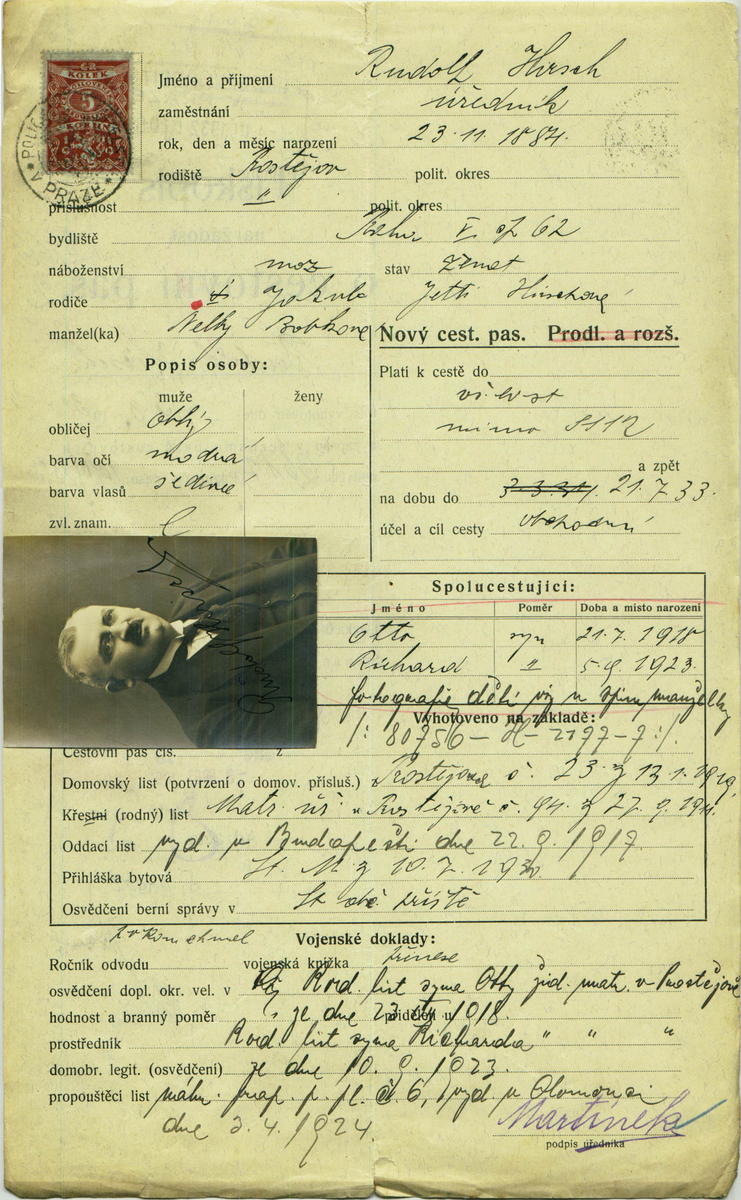 KOLEK
5
POLIC
V PRAZE
Jméno a příjmení Rudolf Hirsch
zaměstnání úředník
rok, den a měsíc narození 23.11.1884.
rodiště Prostějov polit. okres
příslušnost " polit. okres
bydliště Praha V čp 62
náboženství moz stav ženat
rodiče Jakub Jetti Hirschová
manžel(ka) Nelly
Nový cest. pas. Prodl. a rozš.
Popis osoby:
muže ženy
Platí k cestě do
obličej oblý
mimo SSSR
barva očí modrá
a zpět
barva vlasů šedivé
na dobu do 21.7.33.
zvl. znam.
účel a cíl cesty obchodní
Rudolf Hirsch
Spolucestující:
Jméno Poměr Doba a místo narození
Otto syn 21.7.1918
Richard " 5.9.1923.
fotografie dětí viz u spisu manželky
Vyhotoveno na základě:
/: 80756-H-2197-7:/.
Cestovní pas čís. z
Domovský list (potvrzení o domov. přísluš.) Prostějov č. 23 z 13.1.1919,
Křestní (rodný) list Matr. úř. v Prostějově č. 94. z 27.9.1911.
Oddací list vyd. v Budapešti dne 22.9.1917.
Přihláška bytová St. M z 10.7.1930.
Osvědčení berní správy v
Vojenské doklady:
Ročník odvodu vojenská knížka
osvědčení dopl. okr. vel. v Rod. list syna Otty žid. matr. v Prostějově
hodnost a branný poměr ze dne 1918.
přidělen u
prostředník Rod. list syna Richarda " " "
domobr. legit. (osvědčení) ze dne 10.9.1923.
propouštěcí list č. 6, vyd. v Olomouci
dne 3.4.1924.
Martínek
podpis úředníka